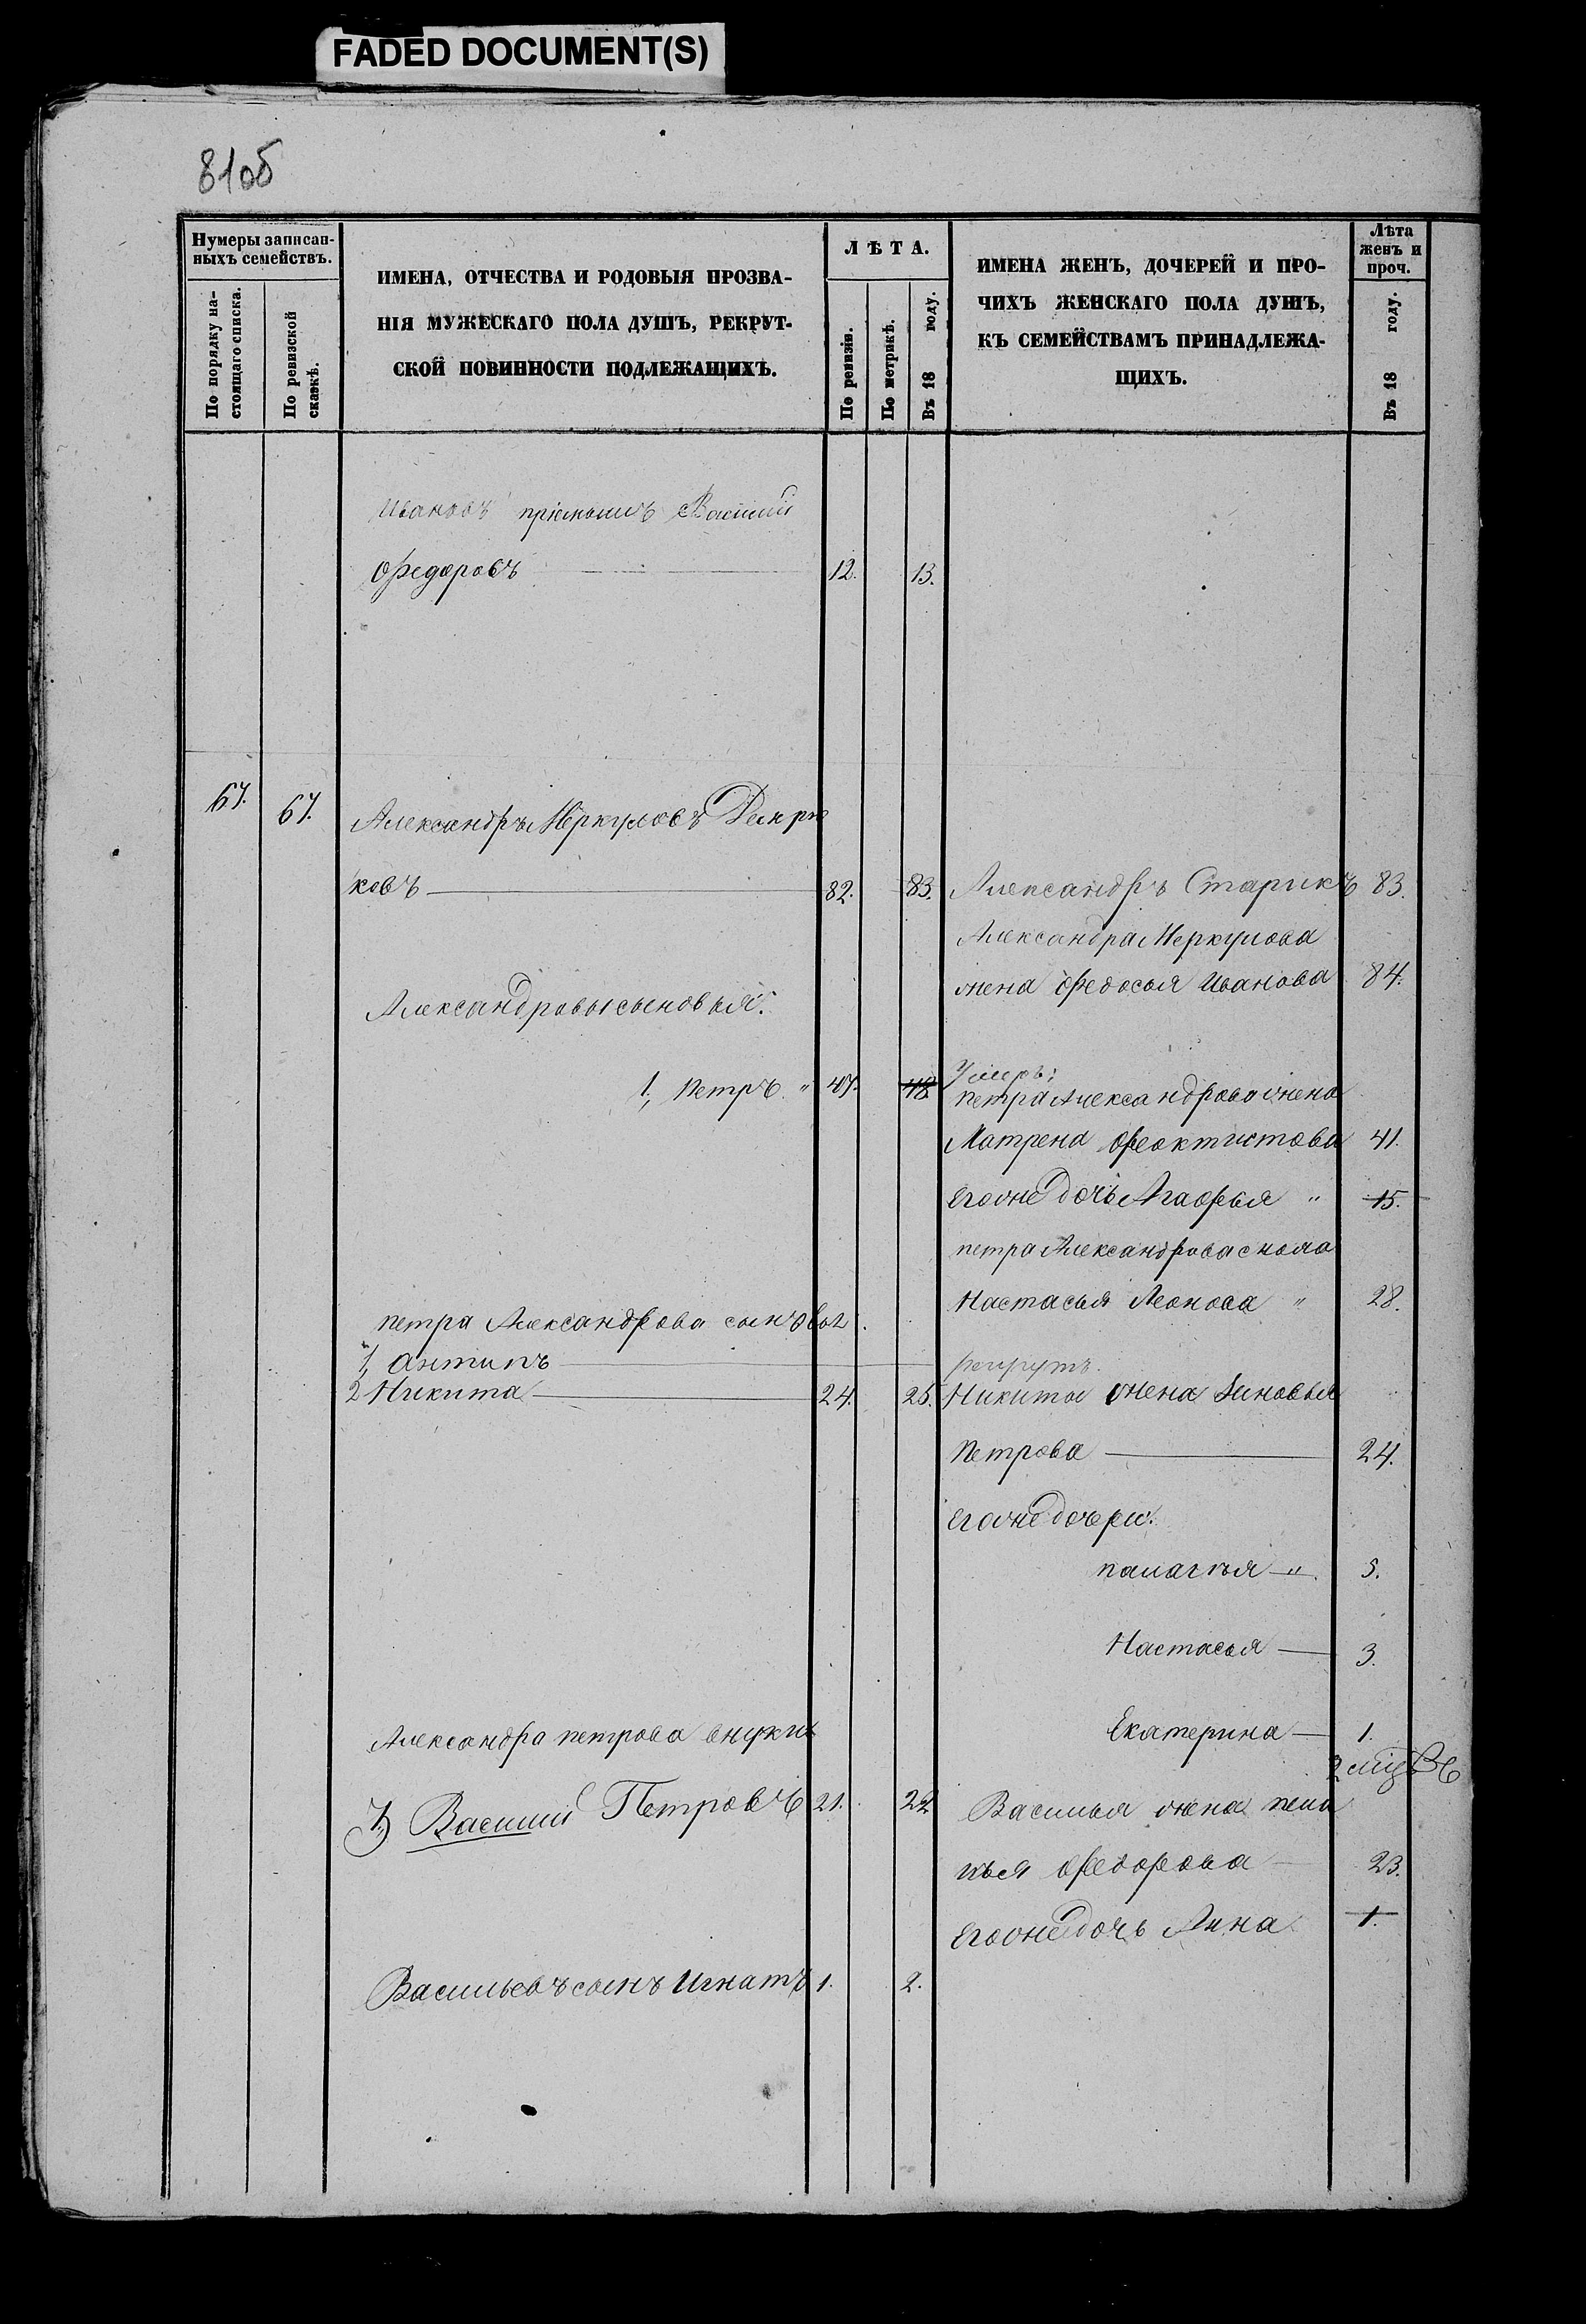 FADED DOCUMENT(S)
81об
Нумеры записан-
ныхъ семействъ.
По порядку на-
стоящаго списка.
По ревизской
сказкѣ.
ИМЕНА, ОТЧЕСТВА И РОДОВЫЯ ПРОЗВА-
НІЯ МУЖЕСКАГО ПОЛА ДУШЪ, РЕКРУТ-
СКОЙ ПОВИННОСТИ ПОДЛЕЖАЩИХЪ.
ЛѢТА.
По ревизіи.
По метрикѣ.
Въ 18 году.
ИМЕНА ЖЕНЪ, ДОЧЕРЕЙ И ПРО-
ЧИХЪ ЖЕНСКАГО ПОЛА ДУШЪ,
КЪ СЕМЕЙСТВАМЪ ПРИНАДЛЕЖА-
ЩИХЪ.
Лѣта
женъ и
проч.
Въ 18 году.
Ивановъ пріемышъ Василий
Федоровъ 12. 13.
67. 67. Александръ Меркуловъ
ковъ 82. 83. Александръ Старикъ 83.
Александра Меркулова
жена Федосья Иванова 84.
Александровы сыновья:
Умеръ:
1, Петръ " 47. 48. Петра Александрова жена
Матрена Феоктистова 41.
Егоже дочь Агафья " 15.
петра Александрова сноха
Настасья Леонова " 28.
петра Александрова сыновья
1, антипъ рекрутъ.
2 Никита 24. 25. Никиты жена Зиновья
Петрова 24.
Егоже дочери:
палагѣя " 5.
Настасья 3.
Александра петрова внуки Екатерина 1.
1) Василий Петровъ 21. 22 Василья жена пела
гѣя Федорова 23.
Егоже дочь Анна 1.
Васильевъ сынъ Игнатъ 1. 2.